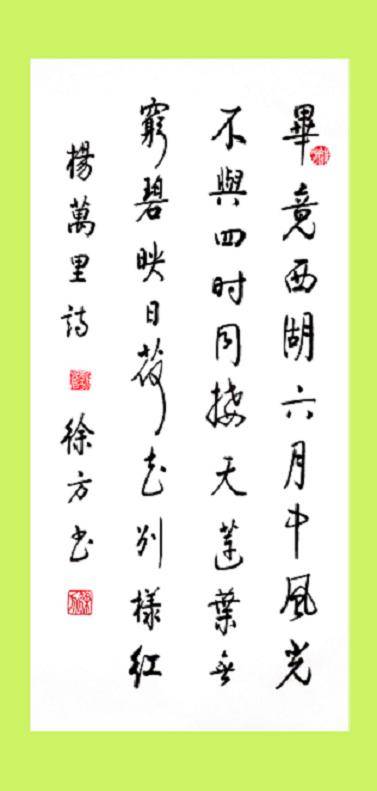 畢竟西湖六月中風光
不與四時同接天蓮葉無
窮碧映日荷花別樣紅
楊萬里詩 徐方书